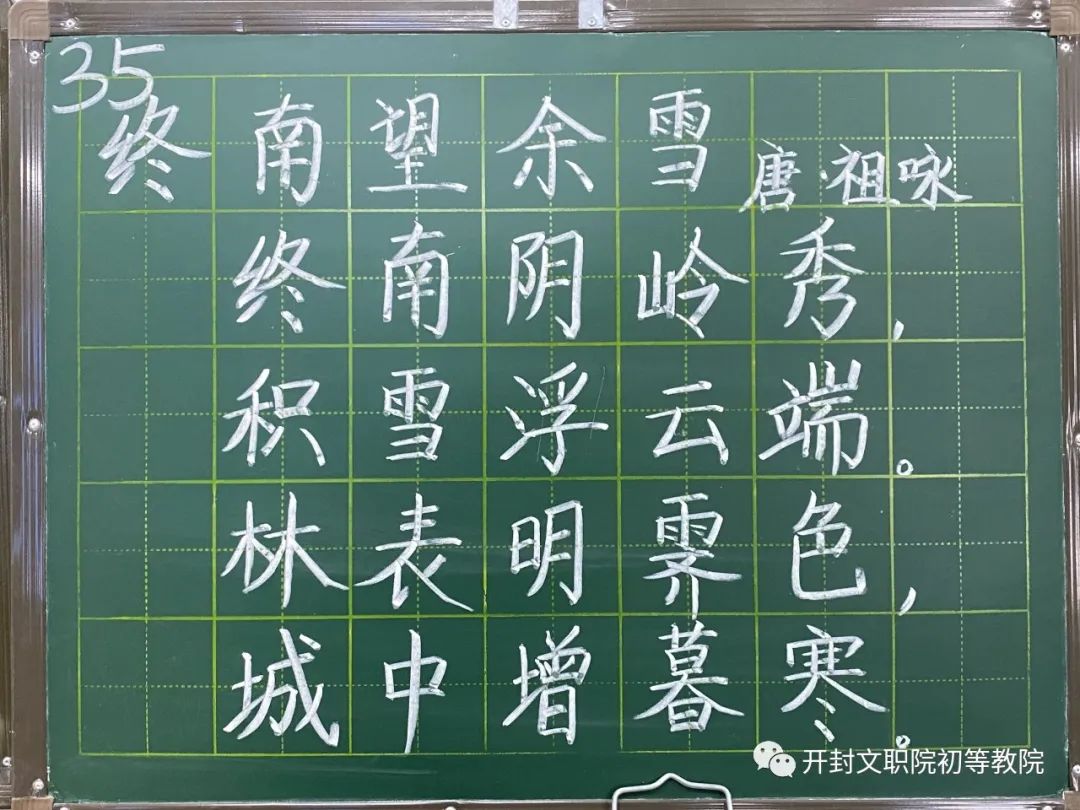 35
终南望余雪 唐·祖咏
终南阴岭秀,
积雪浮云端。
林表明霁色,
城中增暮寒。
开封文职院初等教院